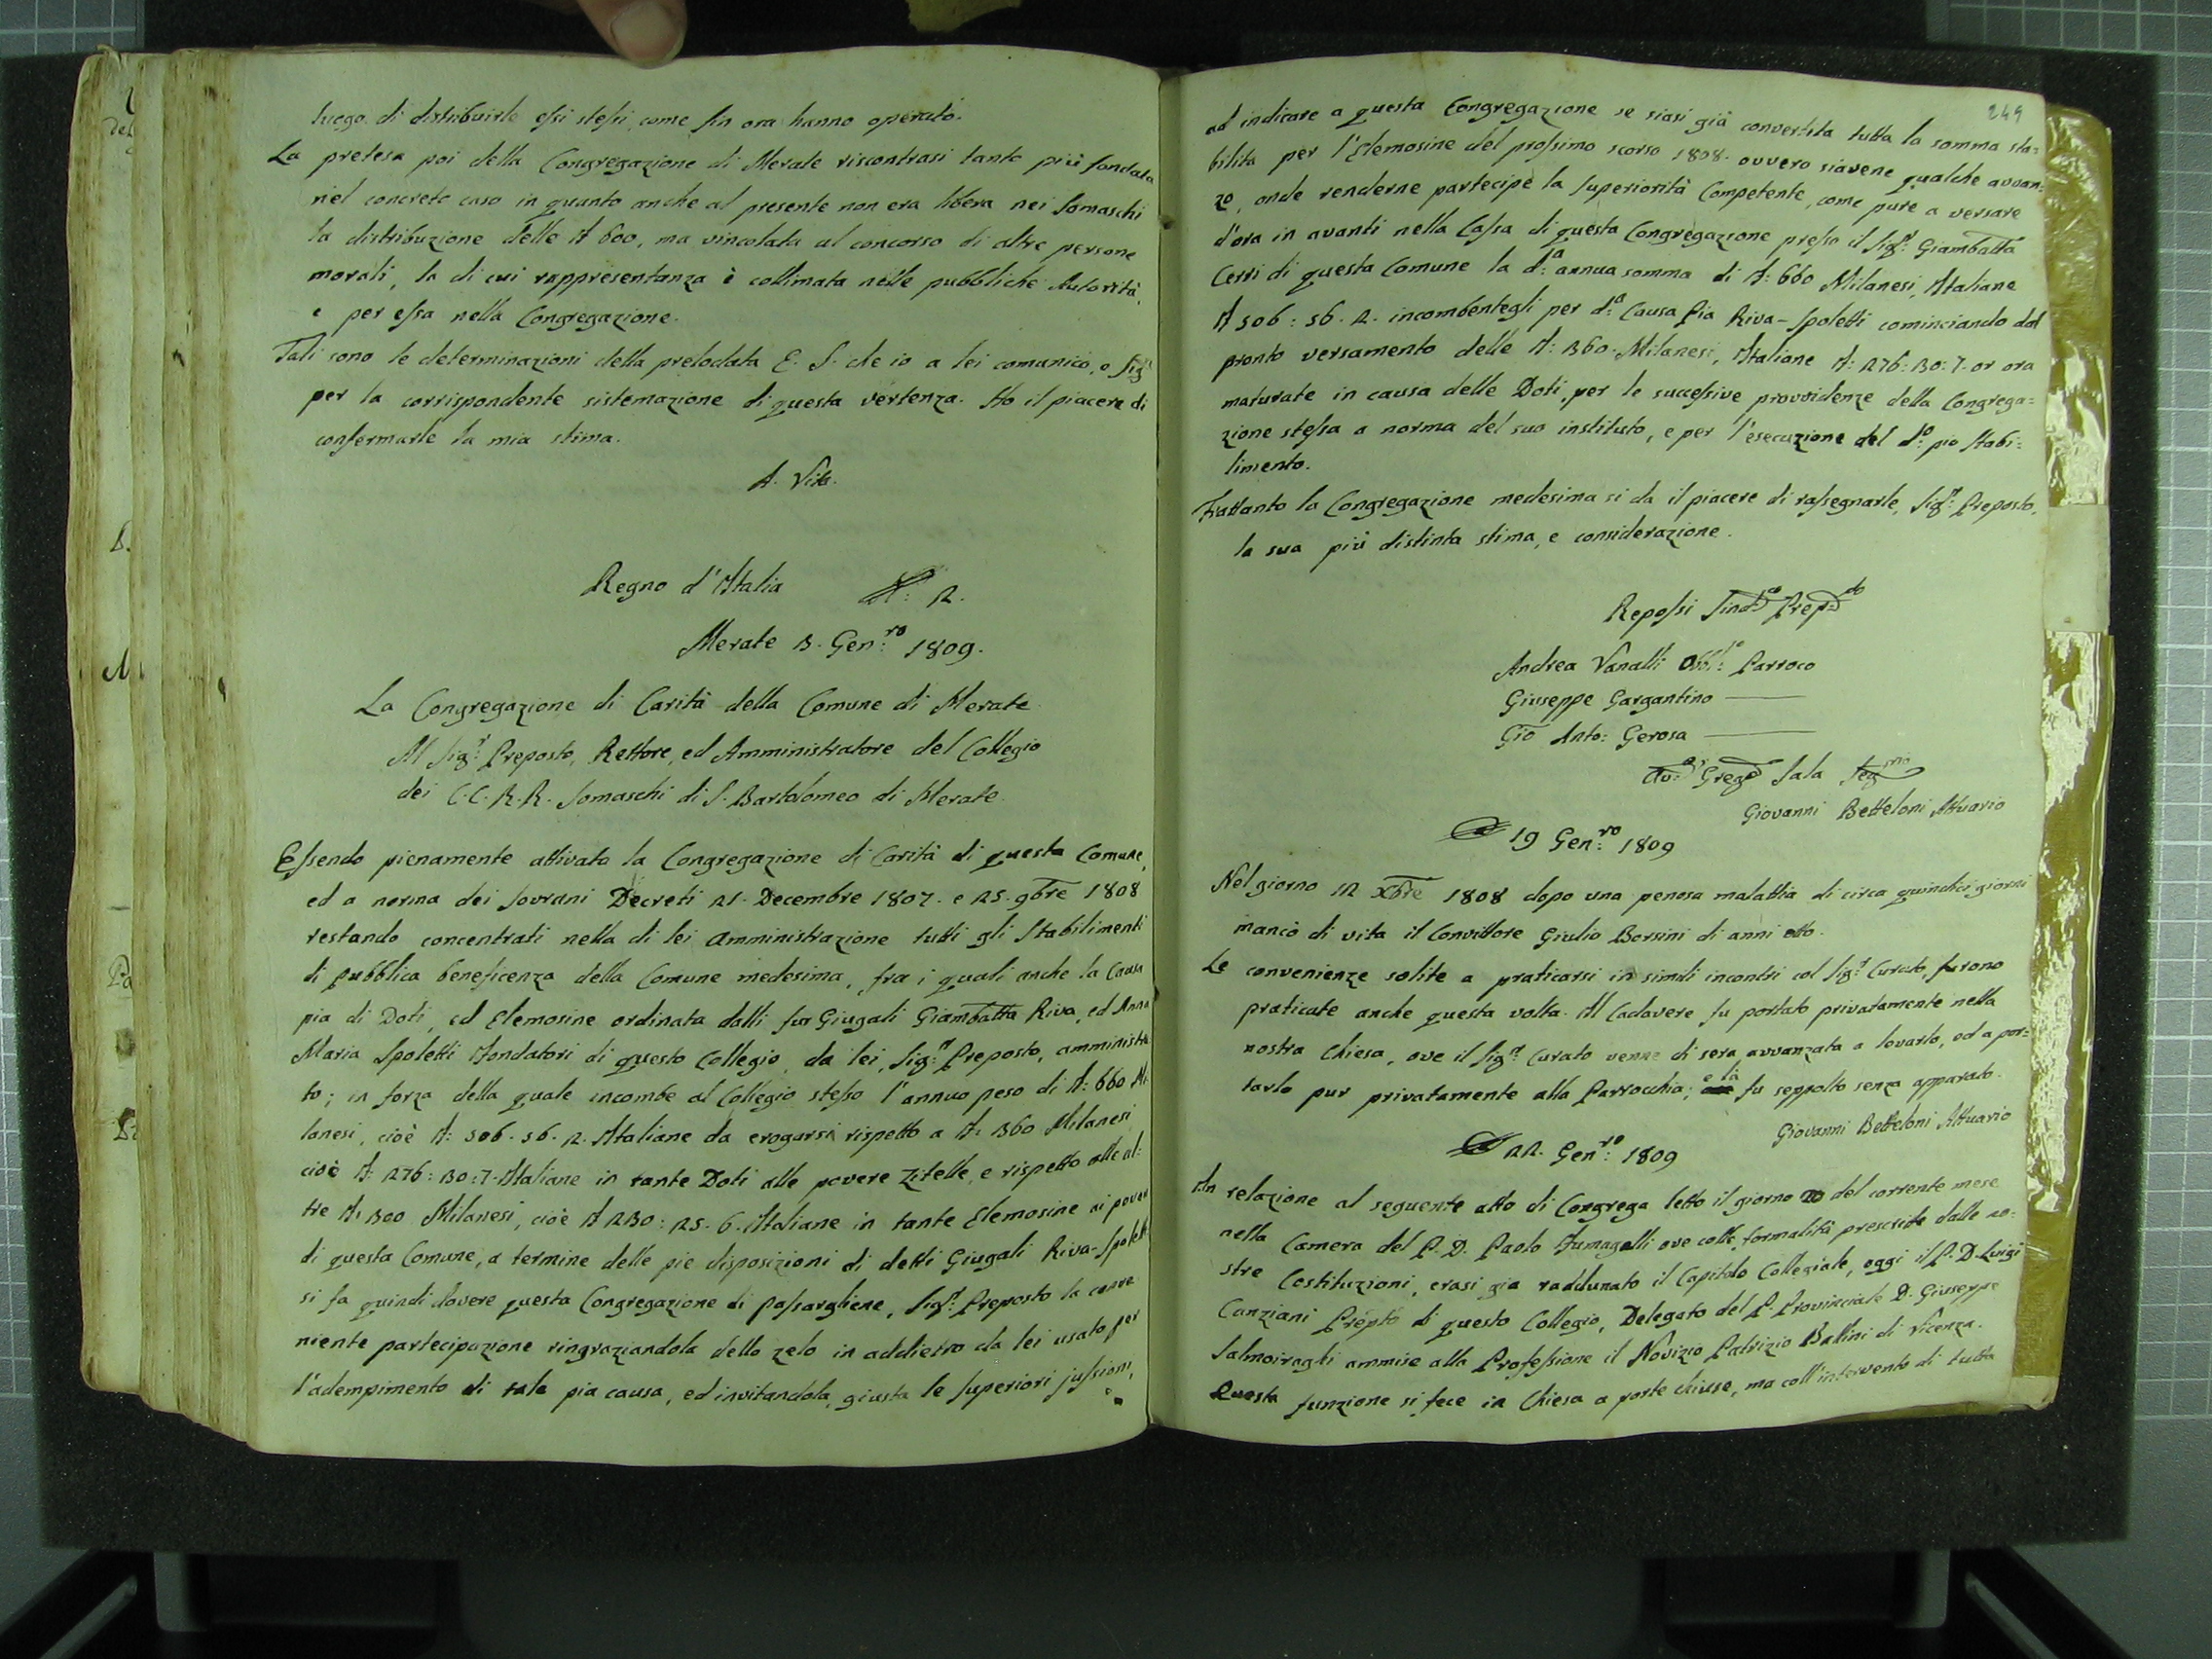 luogo di distribuirle essi stessi come fin ora hanno operato.
La pretesa poi della Congregazione di Merate riscontrasi tanto più fondata
nel concreto caso in quanto anche al presente non era libera nei Somaschi
la distribuzione delle £ 600, ma vincolata al concorso di altre persone
morali, la di cui rappresentanza è collimata nelle pubbliche Autorità,
e per essa nella Congregazione.
Tali sono le determinazioni della prelodata E. S. che io a lei comunico, o Sigr
per la corrispondente sistemazione di questa vertenza. Ho il piacere di
confermarle la mia stima.
A. Vita.
Regno d'Italia N: 2.
Merate 3. Gen:ro 1809.
La Congregazione di Carità della Comune di Merate
Al Sig:r Preposto, Rettore, ed Amministratore del Collegio
dei C.C. R.R. Somaschi di S. Bartolomeo di Merate.
Essendo pienamente attivata la Congregazione di Carità di questa Comune,
ed a norma dei Sovrani Decreti 21. Decembre 1807. e 25. 9bre 1808
restando concentrati nella di lei amministrazione tutti gli Stabilimenti
di pubblica beneficenza della Comune medesima, fra i quali anche la Causa
pia di Doti, ed Elemosine ordinata dalli fur Giugali Giambatta Riva, ed Anna
Maria Spoletti Fondatori di questo Collegio, da lei, Sig:r Preposto, amministra
to; in forza della quale incombe al Collegio stesso l'annuo peso di £: 660 Mi
lanesi, cioè £: 506. 56. 2. Italiane da erogarsi rispetto a £: 360 Milanesi
cioè £: 276: 30: 7. Italiane in tante Doti alle povere Zitelle, e rispetto alle al:
tre £: 300 Milanesi, cioè £ 230: 25. 6. Italiane in tante Elemosine ai poveri
di questa Comune, a termine delle pie disposizioni di detti Giugali Riva-Spoletti
si fa quindi dovere questa Congregazione di passargliene, Sig:r Preposto la conve
niente partecipazione ringraziandola dello zelo in addietro da lei usato per
l'adempimento di tale pia causa, ed invitandola, giusta le Superiori jussioni,
249
ad indicare a questa Congregazione se siasi già convertita tutta la somma sta=
bilita per l'Elemosine del prossimo scorso 1808. ovvero siavene qualche avvan:
zo, onde renderne partecipe la Superiorità Competente, come pure a versare
d'ora in avanti nella Cassa di questa Congregazione presso il Sig:r Giambatta
Cerri di questa Comune la d:a annua somma di £: 660 Milanesi, Italiane
£ 506: 56. 2. incombentegli per d:a Causa Pia Riva-Spoletti cominciando dal
pronto versamento delle £: 360. Milanesi, Italiane £: 276: 30: 7. or ora
maturate in causa delle Doti, per le successive provvidenze della Congrega=
zione stessa a norma del suo instituto, e per l'esecuzione del d:o pio Stabi=
limento.
Frattanto la Congregazione medesima si da il piacere di rassegnarle, Sig:r Preposto,
la sua più distinta stima, e considerazione.
Repossi Sind:co
Andrea Vanalli Parroco
Giuseppe Gargantino
Gio Anto: Gerosa
Sala Seg:rio
Giovanni Betteloni Attuario
19 Gen:ro 1809
Nel giorno 12 Xbre 1808 dopo una penosa malattia di circa quindici giorni
mancò di vita il Convittore Giulio Borsini di anni otto.
Le convenienze solite a praticarsi in simili incontri col Sig:r Curato, furono
praticate anche questa volta. Il Cadavere fu portato privatamente nella
nostra Chiesa, ove il Sig:r Curato venne di sera avvanzata a levarlo, ed a por=
tarlo pur privatamente alla Parrocchia; e là fu seppolto senza apparato.
Giovanni Betteloni Attuario
22. Gen:ro 1809
In relazione al seguente atto di Congrega letto il giorno 20 del corrente mese
nella Camera del P. D. Paolo Fumagalli ove colle formalità prescritte dalle no=
stre Costituzioni, erasi gia raddunato il Capitolo Collegiale, oggi il P. D. Luigi
Canziani Prepto di questo Collegio, Delegato del P. Provinciale D. Giuseppe
Salmoiraghi ammise alla Professione il Novizio Patrizio Ballini di Vicenza.
Questa funzione si fece in Chiesa a porte chiuse, ma coll'intervento di tutta